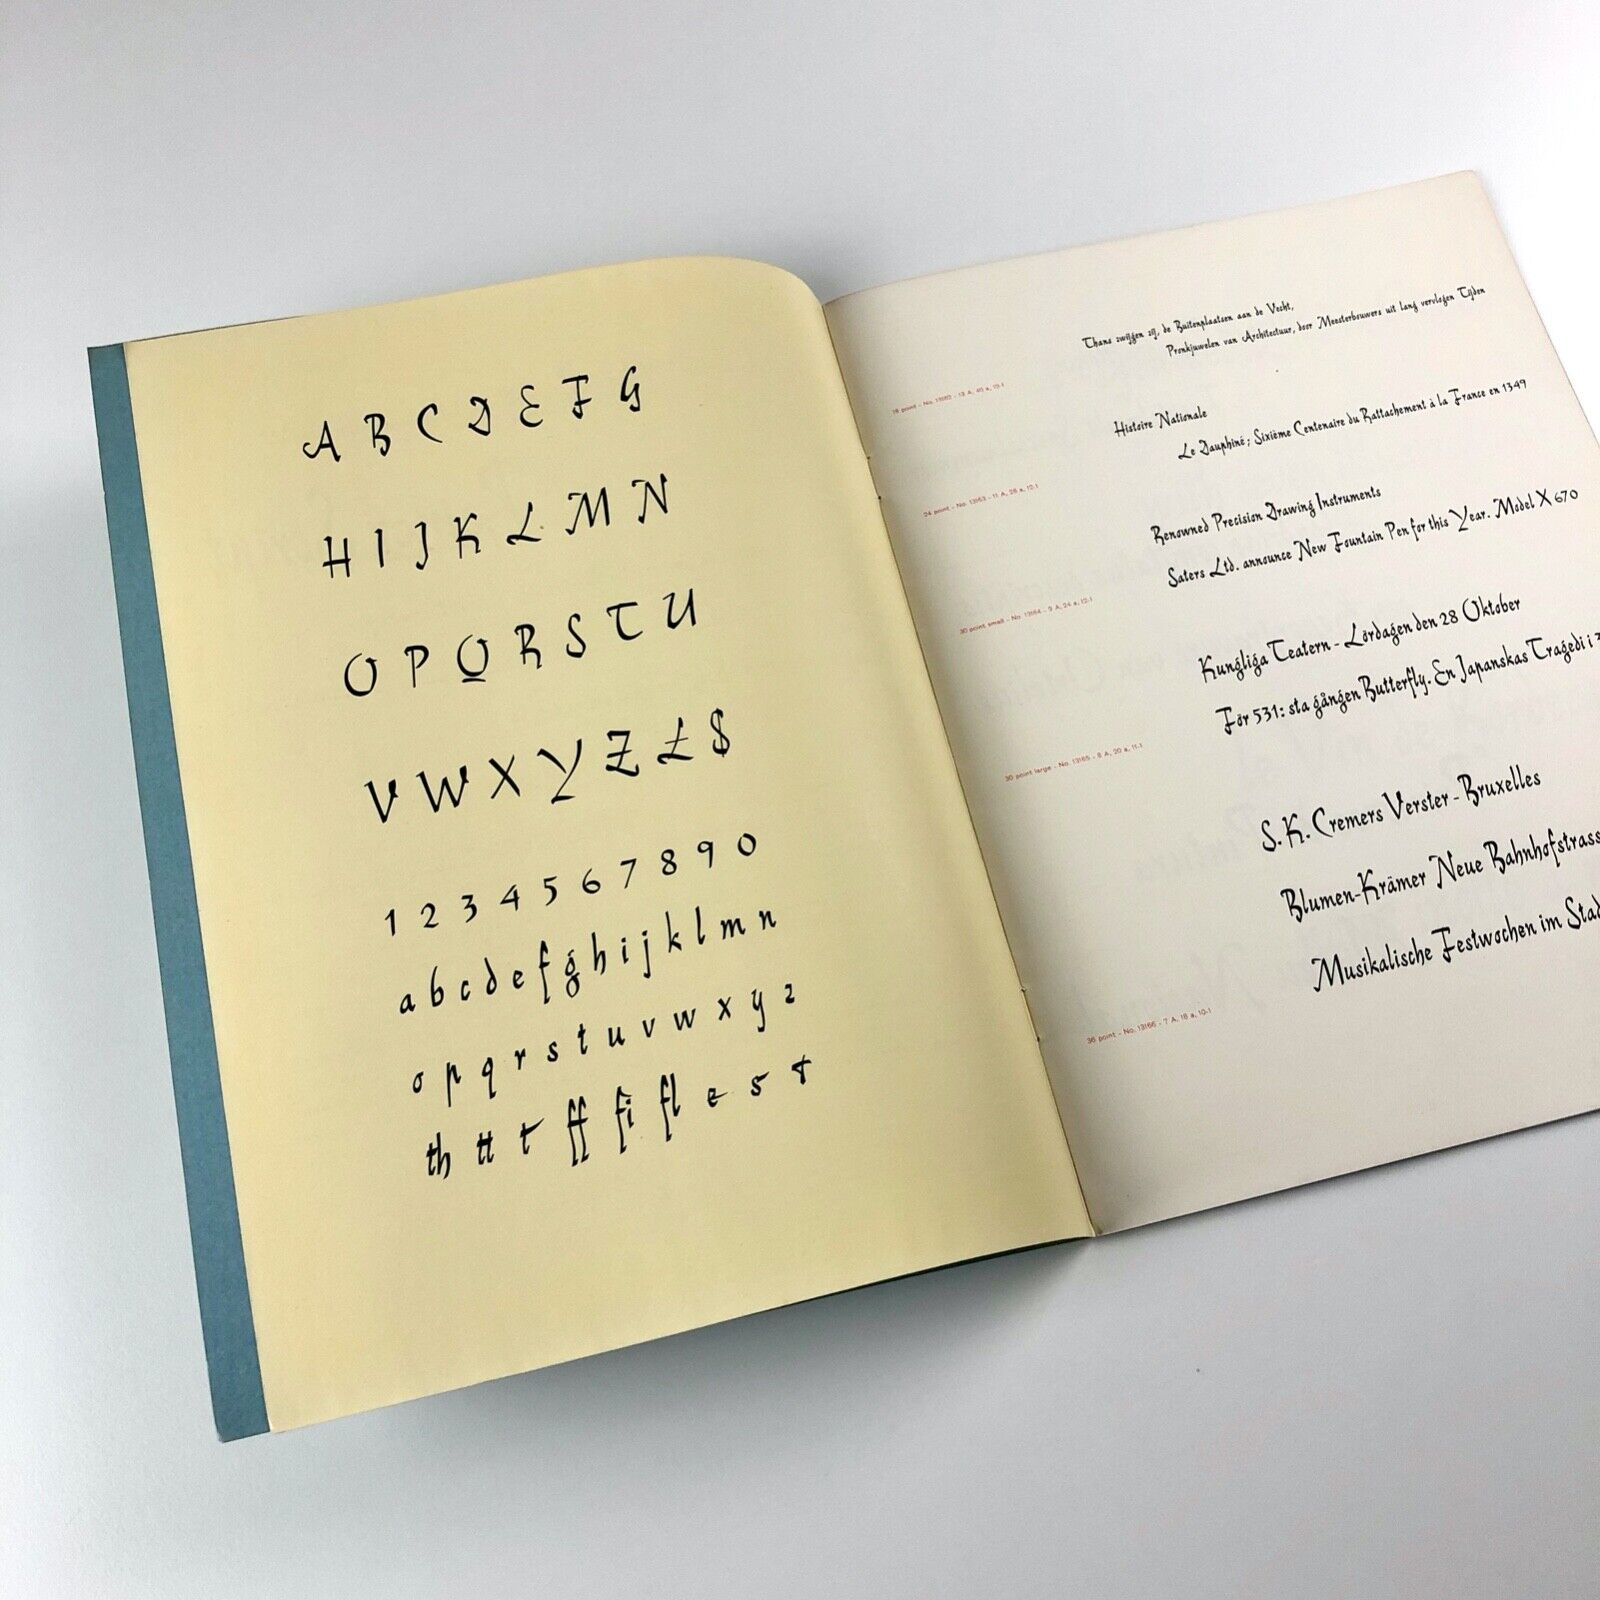 A B C D E F G
H I J K L M N
O P Q R S T U
V W X Y Z £ $
1 2 3 4 5 6 7 8 9 0
a b c d e f g h i j k l m n
o p q r s t u v w x y z
th tt t ff fi fl e s t
Thans zwijgen zij, de Buitenplaatsen aan de Vecht,
Pronkjuwelen van Architectuur, door Meesterbouwers uit lang vervlogen Tijden
18 point - No. 13162 - 13 A, 40 a, 13-1
Histoire Nationale
Le Dauphiné; Sixième Centenaire du Rattachement à la France en 1349
24 point - No. 13163 - 11 A, 26 a, 12-1
Renowned Precision Drawing Instruments
Saters Ltd. announce New Fountain Pen for this Year. Model X 670
30 point small - No. 13164 - 9 A, 24 a, 12-1
Kungliga Teatern - Lördagen den 28 Oktober
För 531: sta gången Butterfly. En Japanskas Tragedi i 3
30 point large - No. 13165 - 8 A, 20 a, 11-1
S. K. Cremers Verster - Bruxelles
Blumen-Krämer Neue Bahnhofstrass
Musikalische Festwochen im Stad
36 point - No. 13166 - 7 A, 18 a, 10-1